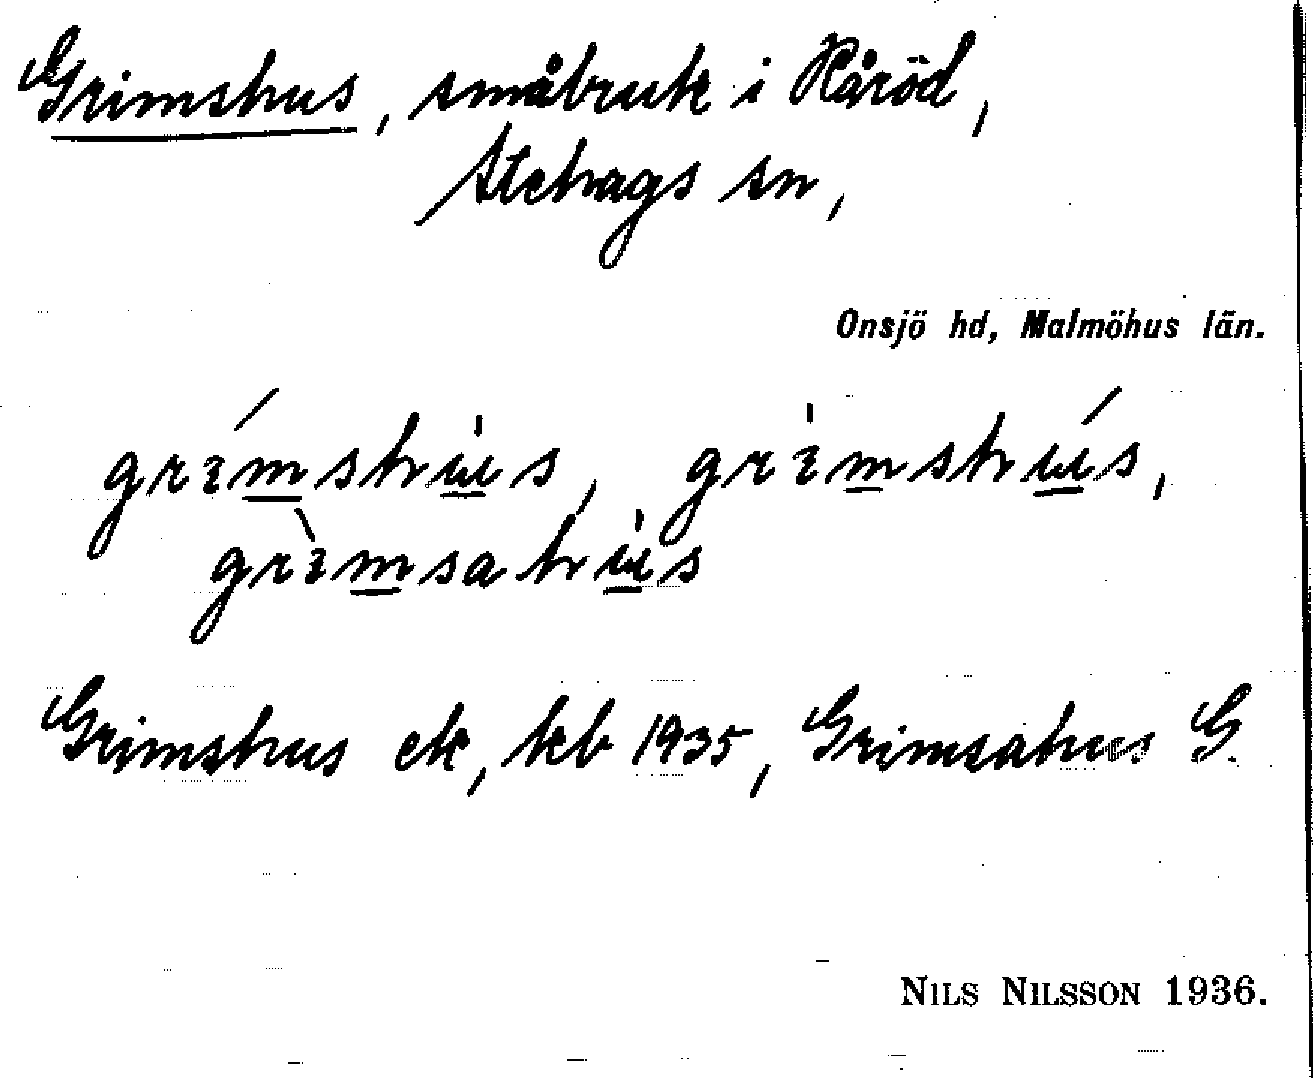 Grimshus, småbruk i Håröd,
Stehags sn,
Onsjö hd, Malmöhus län.
grímshu̇s, grı̇mshús,
grìmsahu̇s
Grimshus ek, kb 1935, Grimsahus G.
NILS NILSSON 1936.